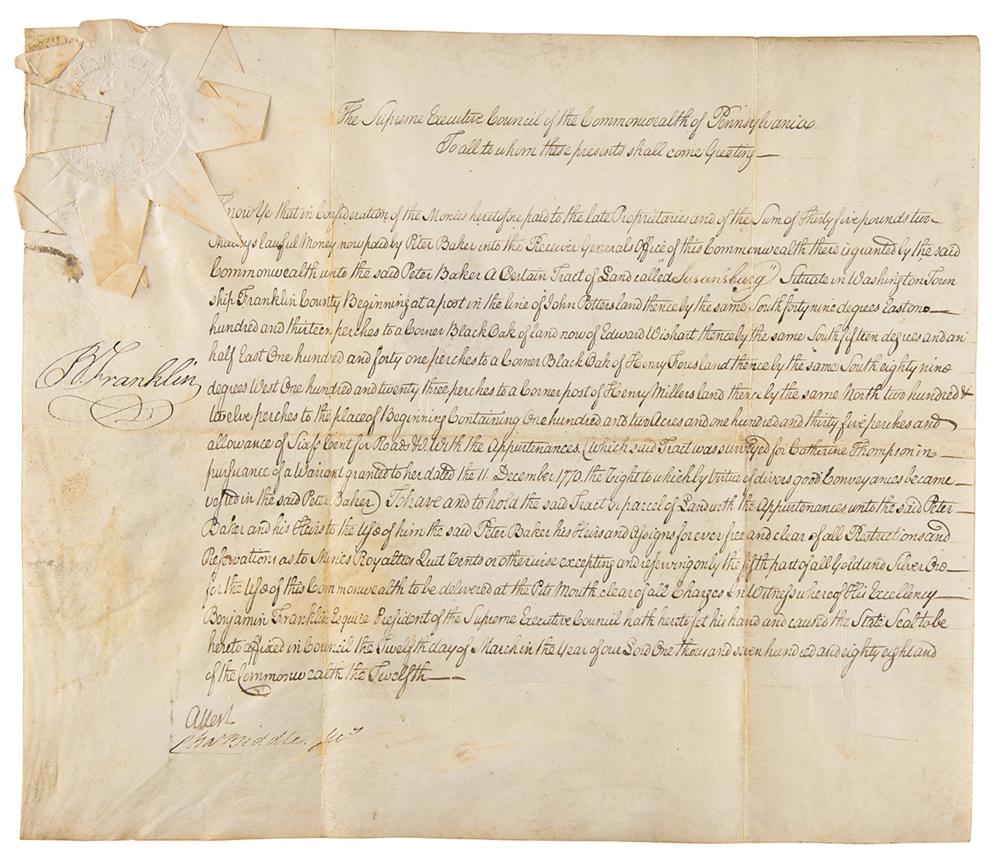 The Supreme Executive Council of the Commonwealth of Pennsylvania
To all to whom these presents shall come Greeting
Know Ye that in Consideration of the Monies heretofore paid to the late Proprietaries and of the Sum of Thirty five pounds two
Shillings lawful Money now paid by Peter Baker into the Receiver Generals Office of this Commonwealth there is granted by the said
Commonwealth unto the said Peter Baker a Certain Tract of Land called "Swansburg" Situate in Washington Town
ship Franklin County Beginning at a post in the line of John Potters land thence by the same South forty nine degrees East one
hundred and thirteen perches to a Corner Black Oak of land now of Edward Wishart thence by the same South fifteen degrees and an
half East One hundred and forty one perches to a Corner Black Oak of Henry land thence by the same South eighty nine
degrees West One hundred and twenty three perches to a Corner post of Henry Millers land thence by the same North two hundred &
twelve perches to the place of Beginning Containing One hundred and two Acres and one hundred and thirty five perches and
allowance of Six P Cent for Roads &c With the Appurtenances (which said Tract was surveyed for Catherine Thompson in
pursuance of a Warrant granted to her dated the 11. December 1770. the Right to which by virtue of divers good Conveyances became
vested in the said Peter Baker.) To have and to hold the said Tract or parcel of Land with the Appurtenances unto the said Peter
Baker and his Heirs to the Use of him the said Peter Baker his Heirs and Assigns for ever free and clear of all Restrictions and
Reservations as to Mines Royalties Quit Rents or otherwise excepting and reserving only the fifth part of all Gold and Silver Ore
for the Use of this Commonwealth to be delivered at the Pits Mouth clear of all Charges In Witness whereof His Excellency
Benjamin Franklin Esquire President of the Supreme Executive Council hath hereto set his hand and caused the State Seal to be
hereto affixed in Council the Twelfth day of March in the Year of our Lord One thousand seven hundred and eighty eight and
of the Commonwealth the Twelfth
B Franklin
Attest
Cha Biddle Secy